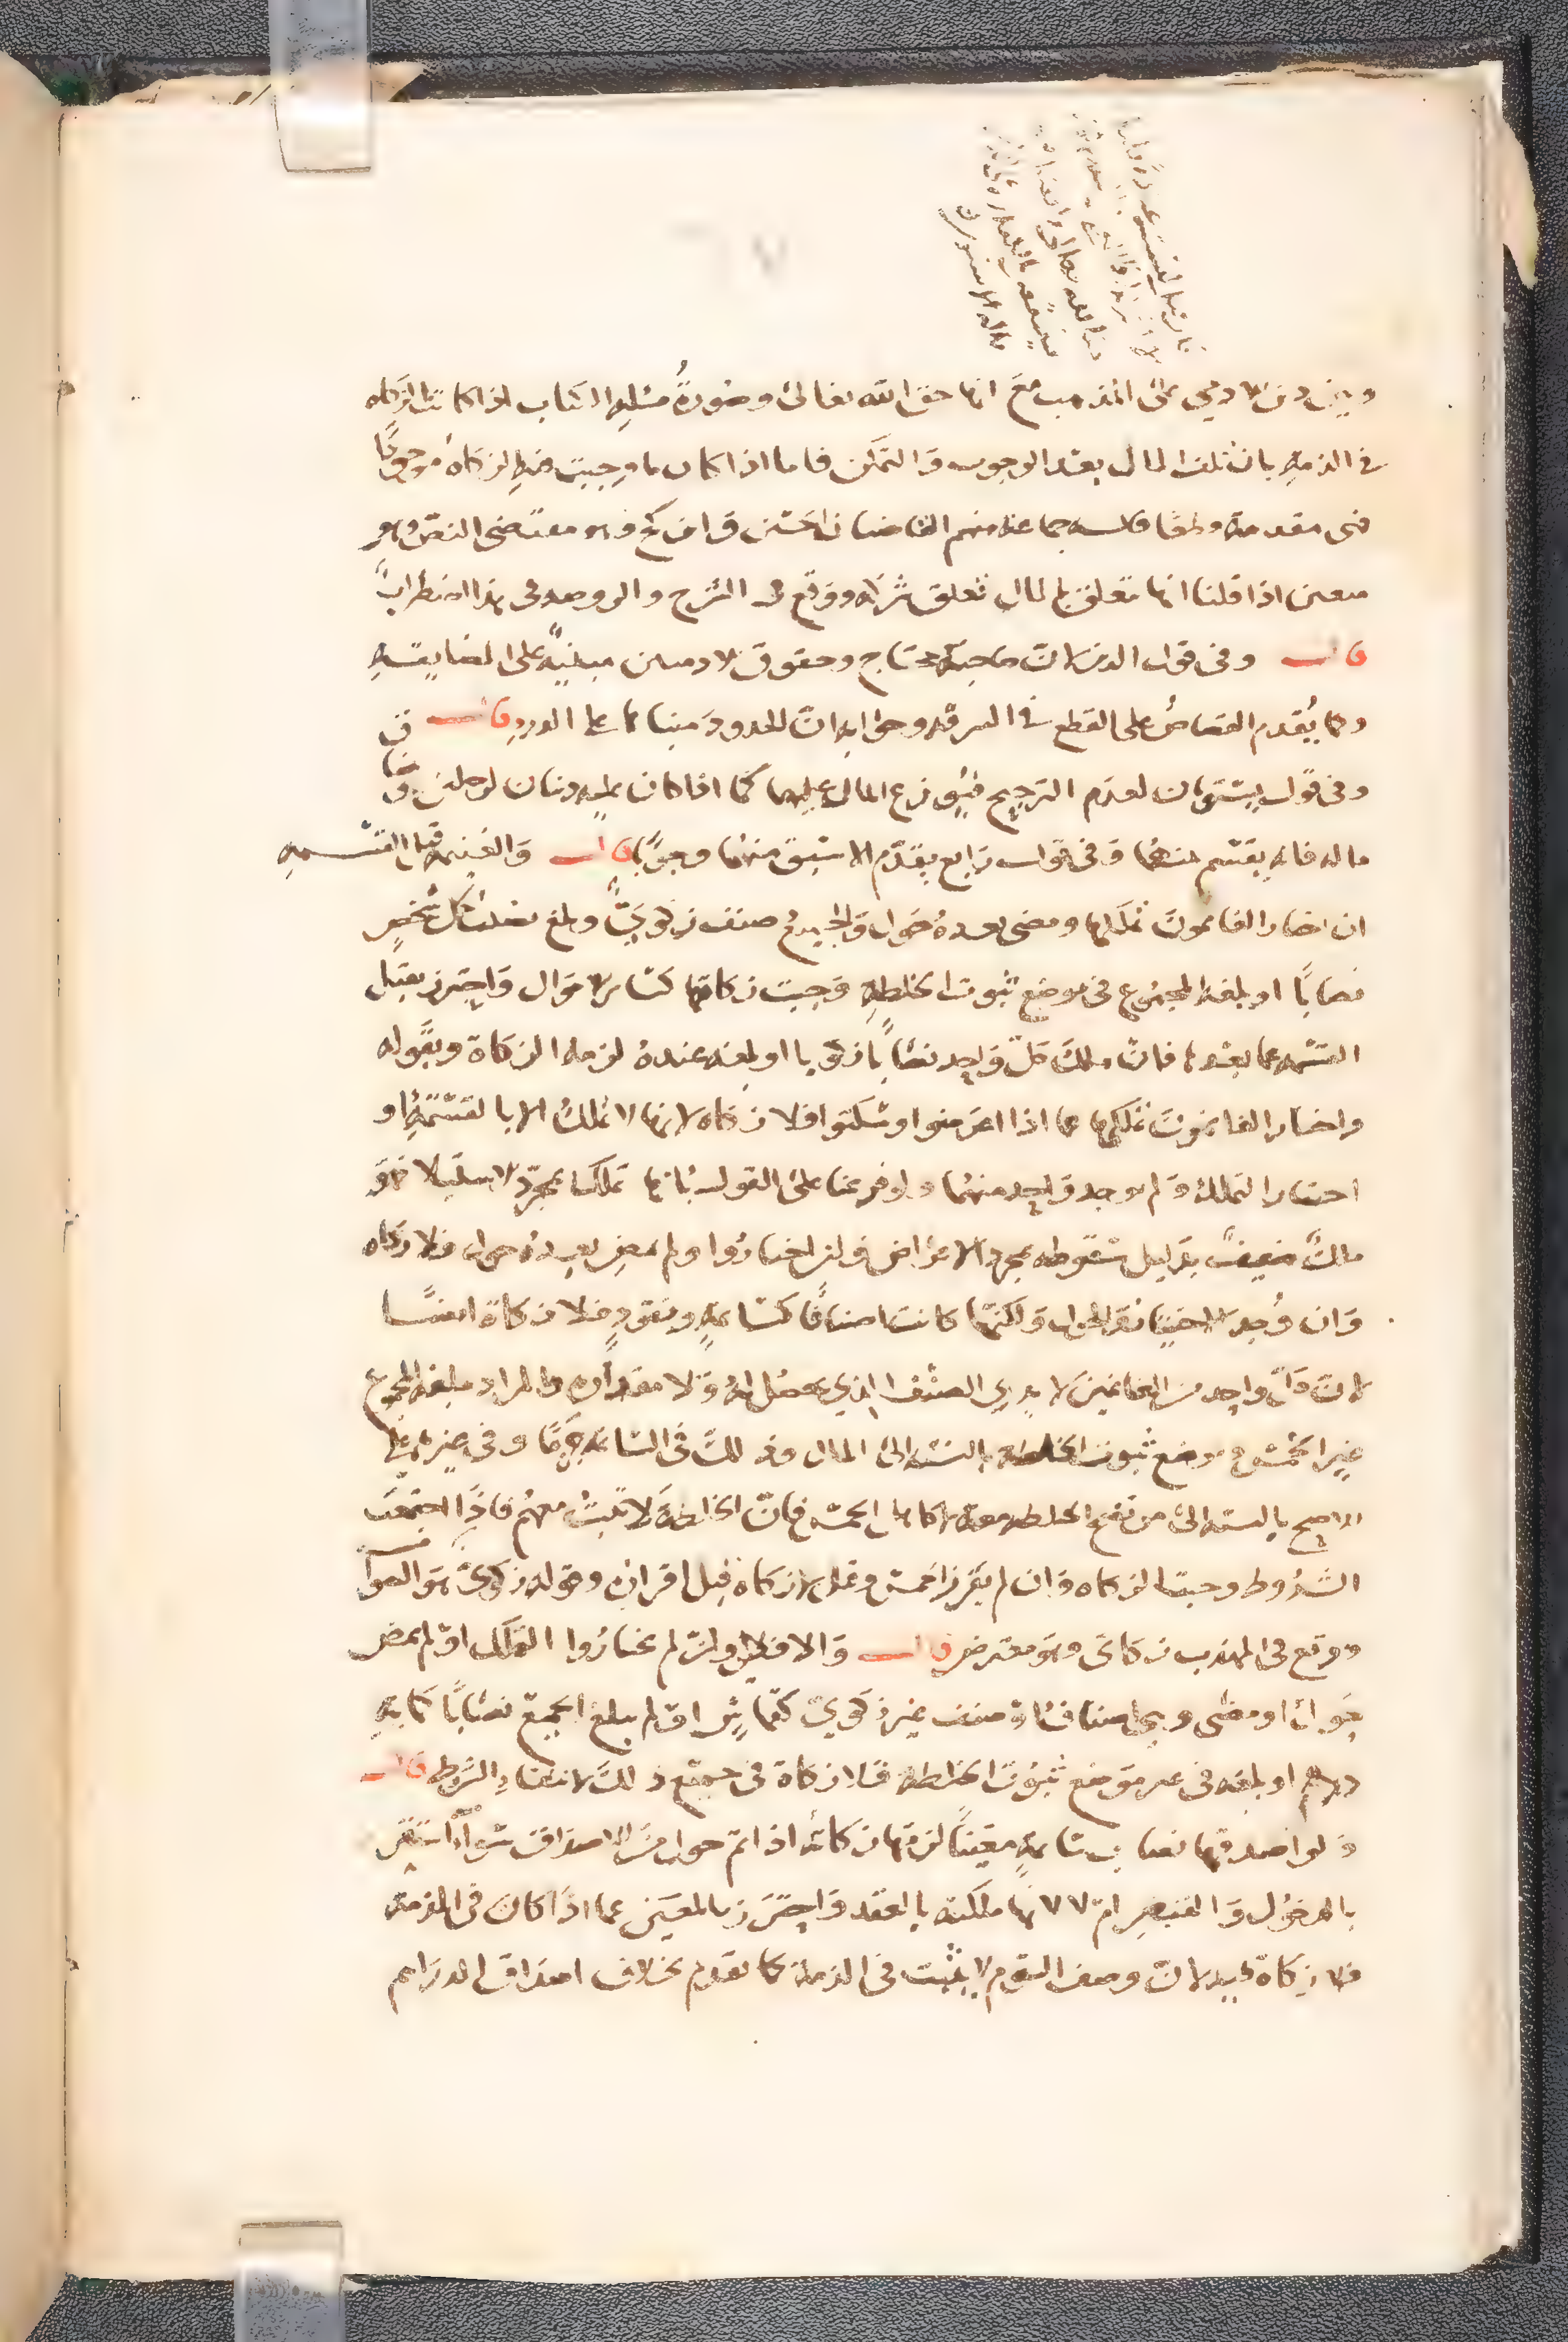 وبين دين الادمي على المذهب مع انها حق الله تعالى وصورة مسئلة الكتاب اذا كانت الزكاه
في الذمة بان تلف المال بعد الوجوب والتمكن فاما اذا كان ما وجبت فيه الزكاه موجودا
فهى مقدمة قطعا قاله جماعة منهم القاضيان الحسن وابن كج وهو مقتضى النص وهو
متعين اذا قلنا انها تتعلق بالمال تعلق شركه ووقع في الشرح والروضه في هذا اضطراب
قال وفى قول الدين لان صاحبه محتاج وحقوق الادميين مبنية على المضايقة
وكما يقدم القصاص على القطع في السرقه وجوابه ان الحدود مبناها على الدرء قال
وفى قول يستويان لعدم الترجيح فيوزع المال عليهما كما اذا كان عليه دينان لرجلين وضاق
ماله فانه يقسم بينهما وفى قول رابع يقدم الاسبق منهما وجوبا قال والغنيمة قبل القسمة
ان اختار الغانمون تملكها ومضى بعده حول والجميع صنف زكوي وبلغ نصيب كل شخص
نصابا او بلغه المجموع في موضع ثبوت الخلطة وجبت زكاتها كسائر الاموال واحترز بقبل
القسمة عما بعدها فان ملك كل واحد نصابا زكويا او بلغه عنده لزمه الزكاة وبقوله
واختار الغانمون تملكها عما اذا اعرضوا او سكتوا فلا زكاه لانها لا تملك الا بالقسمة او
اختيار التملك ولم يوجد واحد منهما ولو فرعنا على القول بانها تملك بمجرد الاستيلا فهو
ملك ضعيف بدليل سقوطه بمجرد الاعراض وان اختاروا ولم يمض بعده حول فلا زكاه
وان وجد الاختيار والحول ولكنها كانت اصنافا كسائمة ونقود فلا زكاة ايضا
لان كل واحد من الغانمين لا يدري الصنف الذي يحصل له ولا مقداره والمراد ببلغه المجموع
غير الخمس وموضع ثبوت الخلطة بالنسبة الى المال وذلك في السائمة جزما وفى غيرها على
الاصح بالنسبه الى من تصح الخلطه معه لا كاهل الخمس فان الخلطة لا تثبت معهم فاذا اجتمعت
الشروط وجبت الزكاه وان لم يفرز الخمس وقيل لا زكاه قبل افرازه وقوله زكوي هو الصواب
ووقع في المهذب زكاتى وهو معترض قال والا فلا اي وان لم يختاروا التملك او لم يمض
حول او مضى وهى اصناف او صنف غير زكوي كقماش او لم يبلغ الجميع نصابا كمايه
درهم او بلغه في غير موضع ثبوت الخلطة فلا زكاة فى جميع ذلك لانتفاء الشرط قال
ولو اصدقها نصاب سائمة معينا لزمها زكاته اذا تم حول من الاصداق سواء استقر
بالدخول والقبض ام لا لانها ملكته بالعقد واحترز بالمعين عما اذا كان في الذمة
فلا زكاة فيه لان وصف السوم لا يثبت في الذمة كما تقدم بخلاف اصداق الدراهم